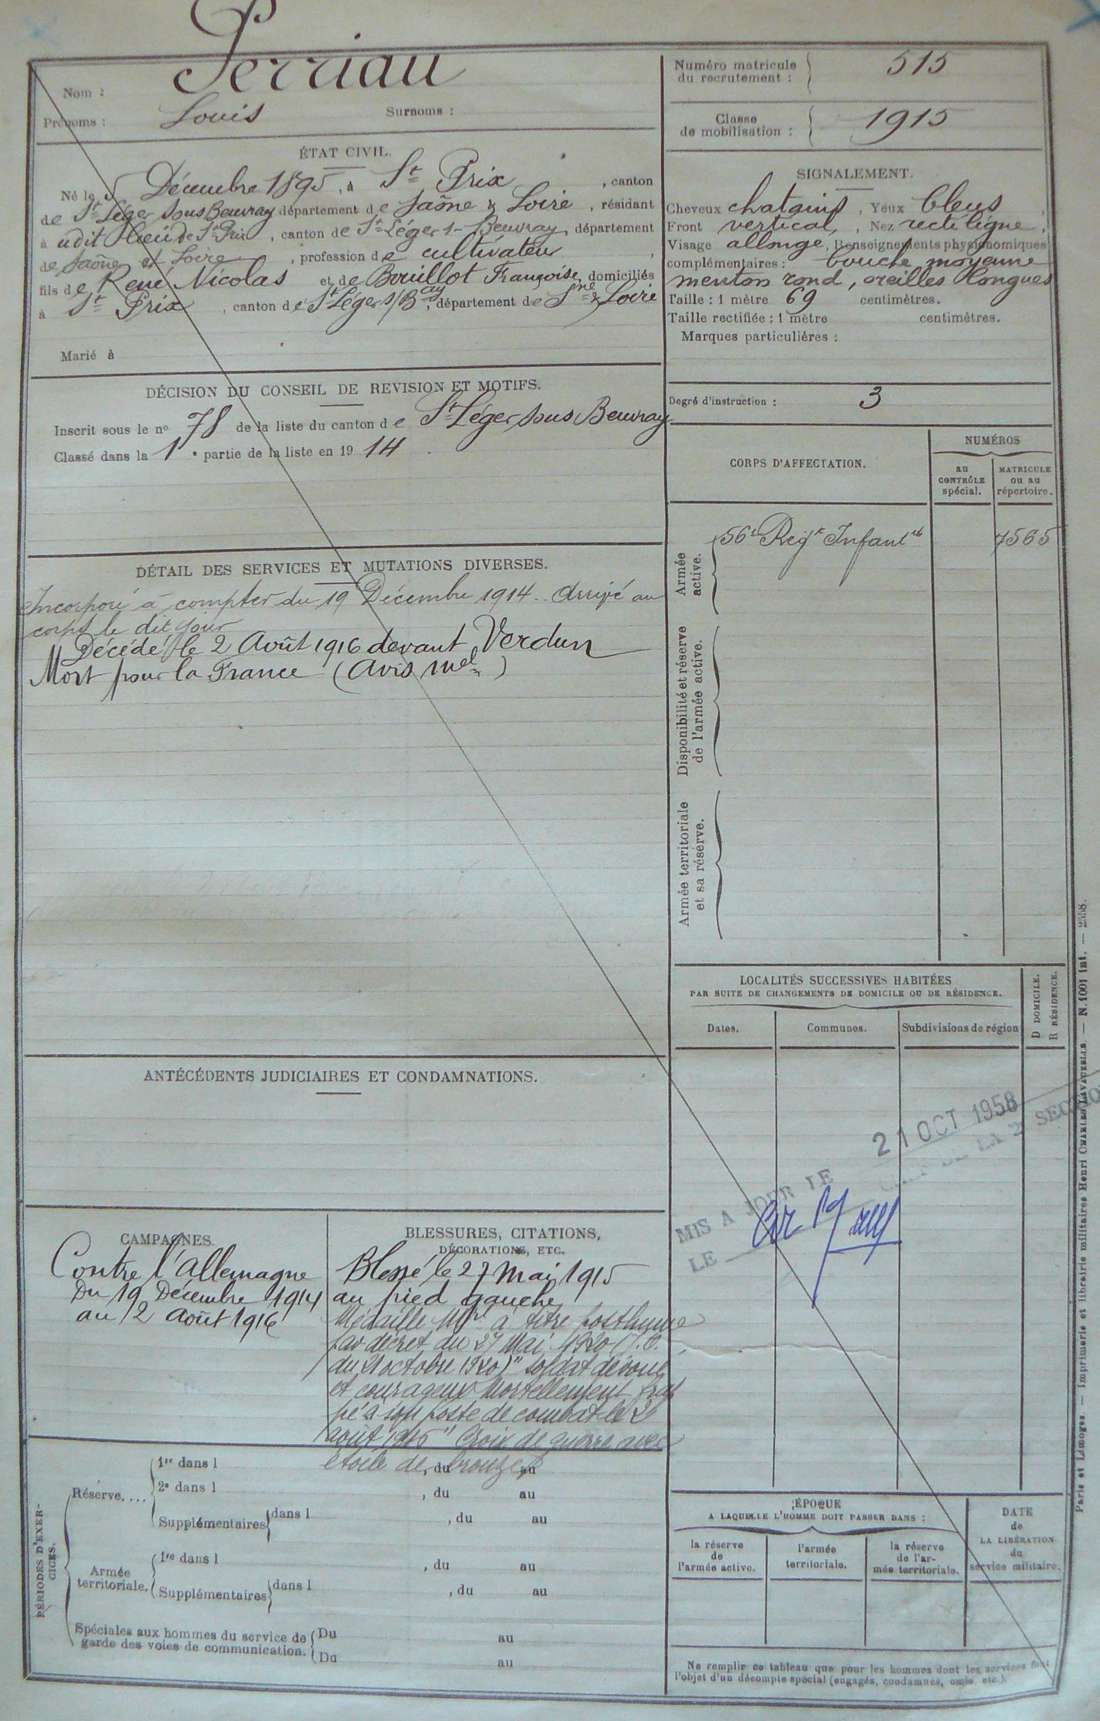 Nom : Perriau
Prénoms : Louis Surnoms :
ÉTAT CIVIL.
Né le 5 Décembre 1895, à St Prix, canton
de St Léger sous Beuvray département de Saône & Loire, résidant
à udit lieu de St Prix, canton de St Léger s- Beuvray, département
de Saône et Loire, profession de cultivateur,
fils de René Nicolas et de Bouillot Françoise, domiciliés
à St Prix, canton de St Léger s/ Bay, département de Sne & Loire
Marié à
DÉCISION DU CONSEIL DE REVISION ET MOTIFS.
Inscrit sous le no 78 de la liste du canton de St Léger sous Beuvray
Classé dans la 1e partie de la liste en 1914.
DÉTAIL DES SERVICES ET MUTATIONS DIVERSES.
Incorporé à compter du 19 Décembre 1914. Arrivé au
corps le dit jour
Décédé le 2 Août 1916 devant Verdun
Mort pour la France (Avis mel)
ANTÉCÉDENTS JUDICIAIRES ET CONDAMNATIONS.
CAMPAGNES.
Contre l'Allemagne
Du 19 Décembre 1914
au 2 Août 1916
BLESSURES, CITATIONS,
DÉCORATIONS, ETC.
Blessé le 27 Mai 1915
au pied gauche
Médaille Mre à titre posthume
par décret du 27 Mai 1920 (J.O.
du 21 octobre 1920) "soldat dévoué
et courageux Mortellement frap
pé à son poste de combat le 2
août 1916" Croix de guerre avec
étoile de bronze
PÉRIODES D'EXER-
CICES.
Réserve....
1re dans l , du au
2e dans l , du au
Supplémentaires dans l , du au
Armée
territoriale.
1re dans l , du au
Supplémentaires dans l , du au
Spéciales aux hommes du service de
garde des voies de communication.
Du au
Du au
Numéro matricule
du recrutement : 515
Classe
de mobilisation : 1915
SIGNALEMENT.
Cheveux chatains, Yeux bleus,
Front vertical, Nez rectiligne,
Visage allongé, Renseignements physionomiques
complémentaires : bouche moyenne
menton rond, oreilles longues
Taille : 1 mètre 69 centimètres.
Taille rectifiée : 1 mètre centimètres.
Marques particulières :
Degré d'instruction : 3
CORPS D'AFFECTATION.
NUMÉROS
AU
CONTRÔLE
spécial.
MATRICULE
ou au
répertoire.
Armée
active.
56e Régt Infantie 7565
Disponibilité et réserve
de l'armée active.
Armée territoriale
et sa réserve.
LOCALITÉS SUCCESSIVES HABITÉES
PAR SUITE DE CHANGEMENTS DE DOMICILE OU DE RÉSIDENCE.
D DOMICILE.
R RÉSIDENCE.
Dates. Communes. Subdivisions de région
MIS A JOUR LE 21 OCT 1958
LE
ÉPOQUE
A LAQUELLE L'HOMME DOIT PASSER DANS :
la réserve
de
l'armée active.
l'armée
territoriale.
la réserve
de l'ar-
mée territoriale.
DATE
de
LA LIBÉRATION
du
service militaire.
Ne remplir ce tableau que pour les hommes dont les services font
l'objet d'un décompte spécial (engagés, condamnés, omis, etc.).
Paris et Limoges. — Imprimerie et librairie militaires Henri CHARLES-LAVAUZELLE. — N. 1001 int. —